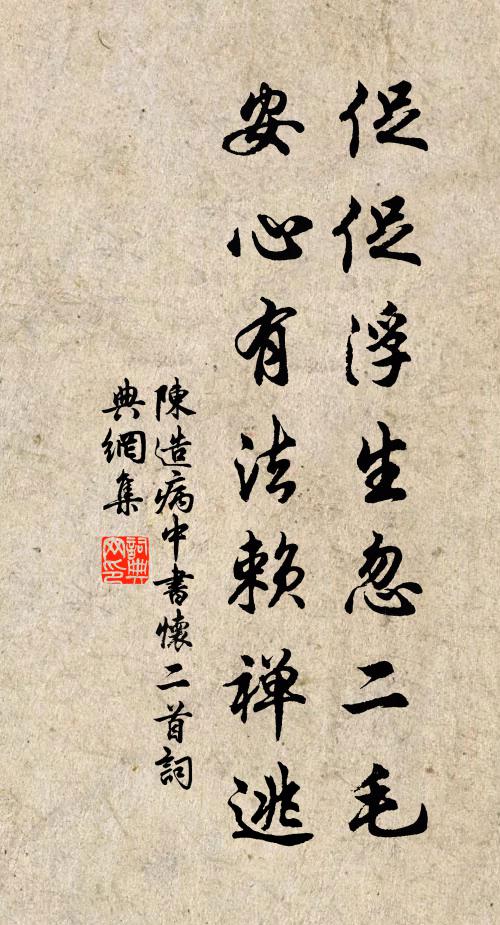 促促浮生忽二毛
安心有法赖禅逃
陳造病中書懷二首詞
典網集
詞典
网印